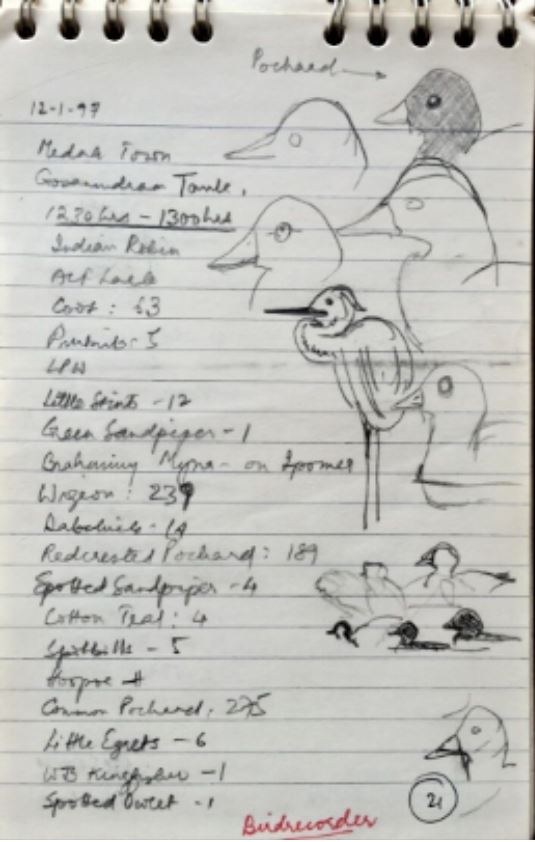 Pochard
12-1-97
Medak Town
Tank,
1230hrs - 1300hrs
Indian Robin
Coot : 53
LPW
Little Stints - 12
Green Sandpiper - 1
Brahminy Myna - on Ipomea
Wigeon : 239
Dabchick - 14
Redcrested Pochard : 189
Spotted Sandpiper - 4
Cotton Teal : 4
Spotbills - 5
Hoopoe
Common Pochard : 275
Little Egrets - 6
WB Kingfisher - 1
Spotted Owlet - 1
21
Birdrecorder